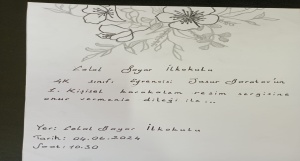 Celal Bayar İlkokulu
4K sınıfı Öğrencisi Yaşar Baratar'ın
1. Kişisel karakalem resim sergisine
onur vermeniz dileği ile...
Yer: Celal Bayar İlkokulu
Tarih: 04.06.2024
Saat: 10.30